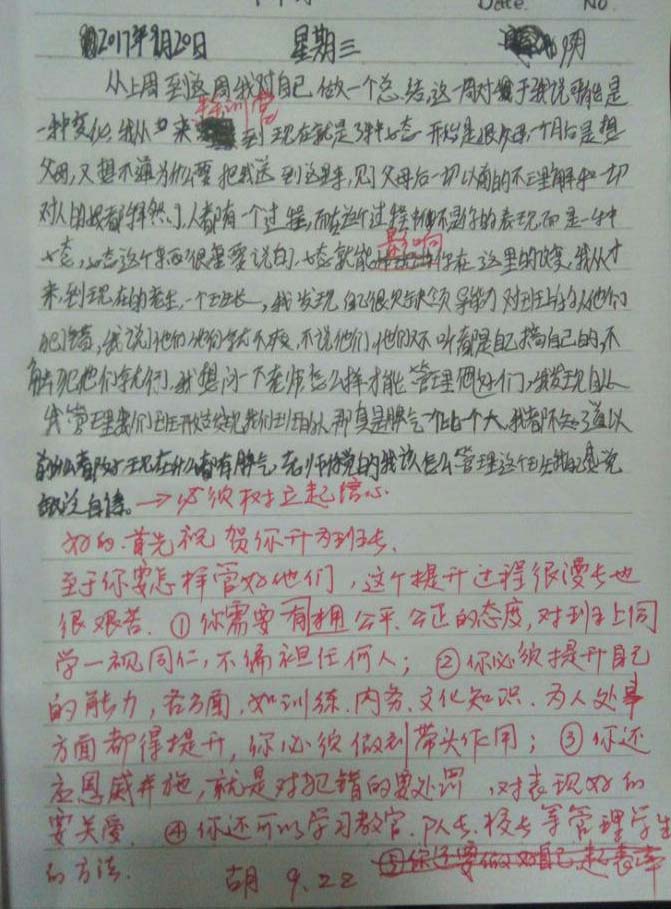 Date. No.
2017年9月20日 星期三 阴
从上周到这周我对自己做一个总结,这一周对于我说可能是
特训营
一种变化,我从来到现在就是3种心态 开始是很父母,一个月后是想
父母,又想不通为什么要把我送到这里来,见了父母后一切以前的不理解和一切
对人的都释然了,人都有一个过程,而在这个过程不是你的表现而是一种
影响
心态,心态这个东西很重要说白了,心态就能你在这里的改变,我从才
来,到现在的老生,一个班长,我发现自己很欠缺领导能力 对班上的人他们
犯错,我说他们他们就不爽,不说他们,他们又不叫都是自己搞自己的,不
触犯他们就行,我想问一下老师怎么样才能管理他们,我发现自从
我管理我们班开始发现我们班的人那真是脾气一个比一个大,我都不知道以
前什么都好现在什么都有脾气,老师你觉的我该怎么管理这个班我感觉
我没自信。→必须树立起信心
好的.首先祝贺你升为班长,
至于你要怎样管好他们,这个提升过程很漫长也
很艰苦.①你需要有拥公平、公正的态度,对班上同
学一视同仁,不偏袒任何人;②你必须提升自己
的能力,各方面,如训练.内务.文化知识.为人处事
方面都得提升,你必须做到带头作用;③你还
应恩威并施,就是对犯错的要处罚,对表现好的
要关爱.④你还可以学习教官、队长、校长等管理学生
的方法. 胡 9.22 ⑤你还要做好自己起表率